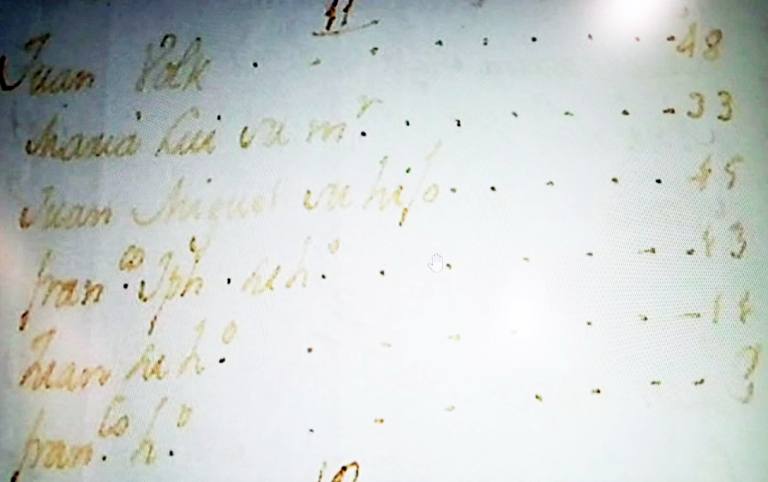 11
Juan Volk . . . . . . . . 48
Maria Lui su mr . . . . . . . 33
Juan Miguel su hijo . . . . . 15
franco Jph su ho . . . . . . 13
Juan su ho . . . . . . . 11
franco ho . . . . . . . 3